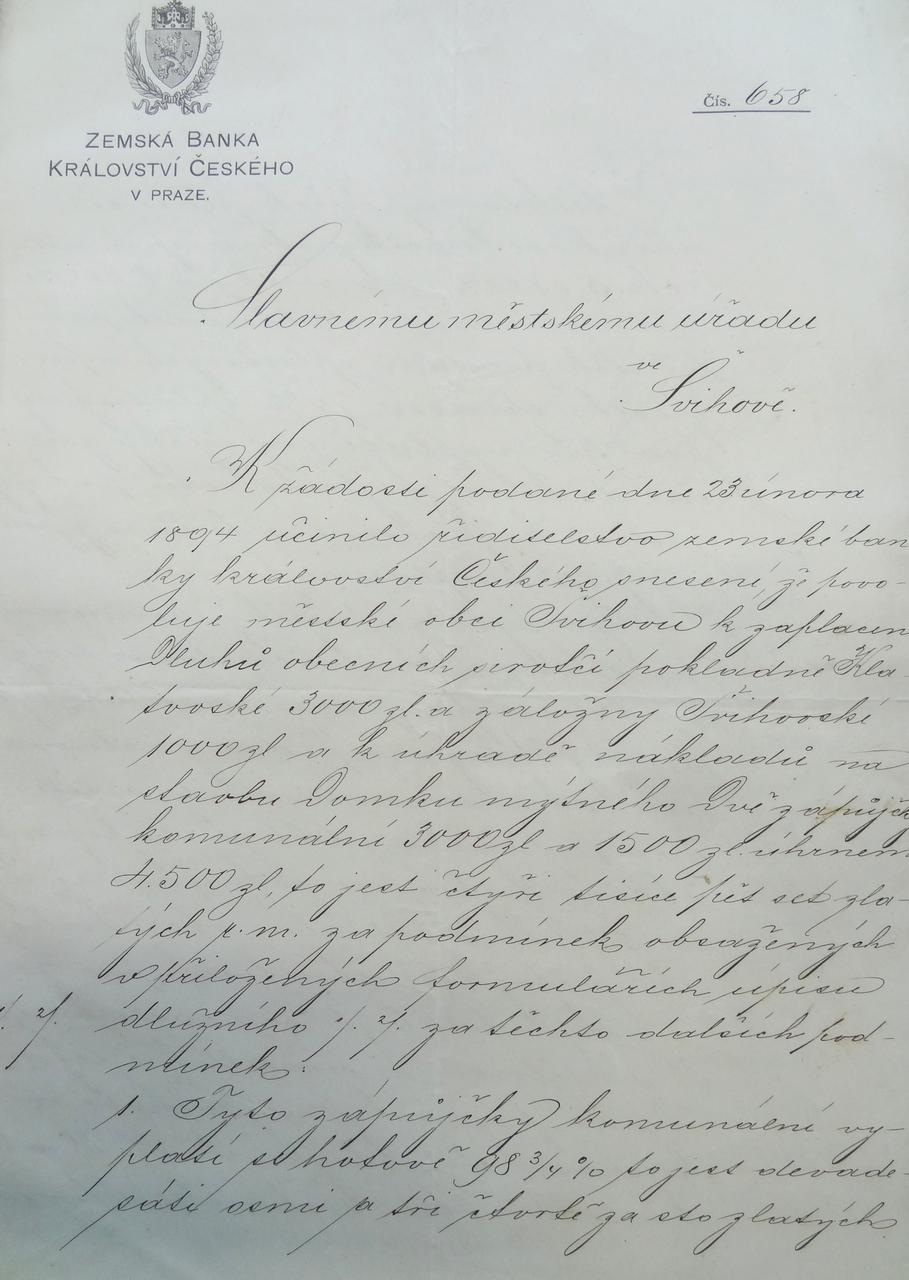 Čís. 658
ZEMSKÁ BANKA
KRÁLOVSTVÍ ČESKÉHO
V PRAZE.
Slavnému městskému úřadu
ve
Švihově.
K žádosti podané dne 23 února
1894 učinilo ředitelstvo zemské ban
ky království Českého snesení, že povo-
luje městské obci Švihovu k zaplacen
dluhů obecních sirotčí pokladně Kla-
tovské 3000 zl. a záložny Švihovské
1000 zl a k úhradě nákladů na
stavbu domku mýtného dvě zápůjčk
komunální 3000 zl a 1500 zl. úhrnem
4.500 zl, to jest čtyři tisíce pět set zla-
tých r. m. za podmínek obsažených
v přiložených formulářích úpisu
1/. 2/. dlužního 1/. 2/. za těchto dalších pod-
mínek:
1. Tyto zápůjčky komunální vy-
platí se hotově 98 3/4 % to jest devade-
sáti osmi a tři čtvrtě za sto zlatých